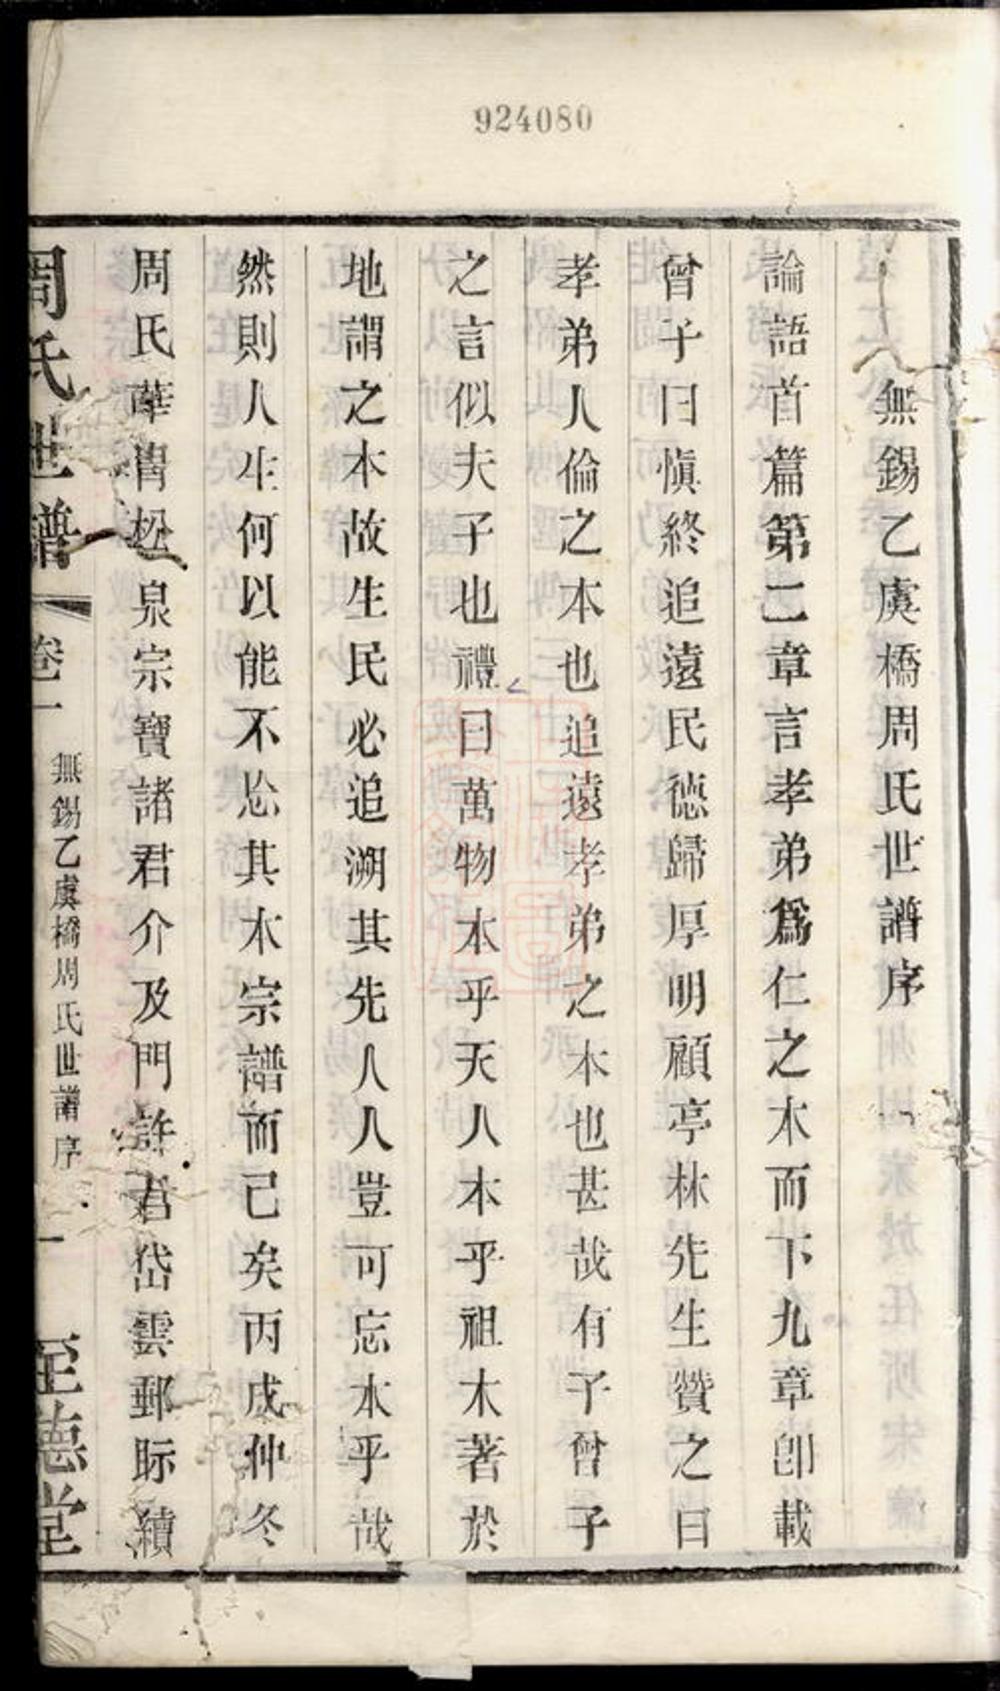 924080
無錫乙虞橋周氏世譜序
論語首篇第二章言孝弟爲仁之本而下九章卽載
曾子曰愼終追遠民德歸厚明顧亭林先生贊之曰
孝弟人倫之本也追遠孝弟之本也甚哉有子曾子
之言似夫子也禮曰萬物本乎天人本乎祖木著於
地謂之本故生民必追溯其先人人豈可忘本乎哉
然則人生何以能不忘其本宗譜而已矣丙戌仲冬
周氏華胄松泉宗寶諸君介及門許君岱雲郵眎續
周氏世譜 卷一 無錫乙虞橋周氏世譜序 一 至德堂